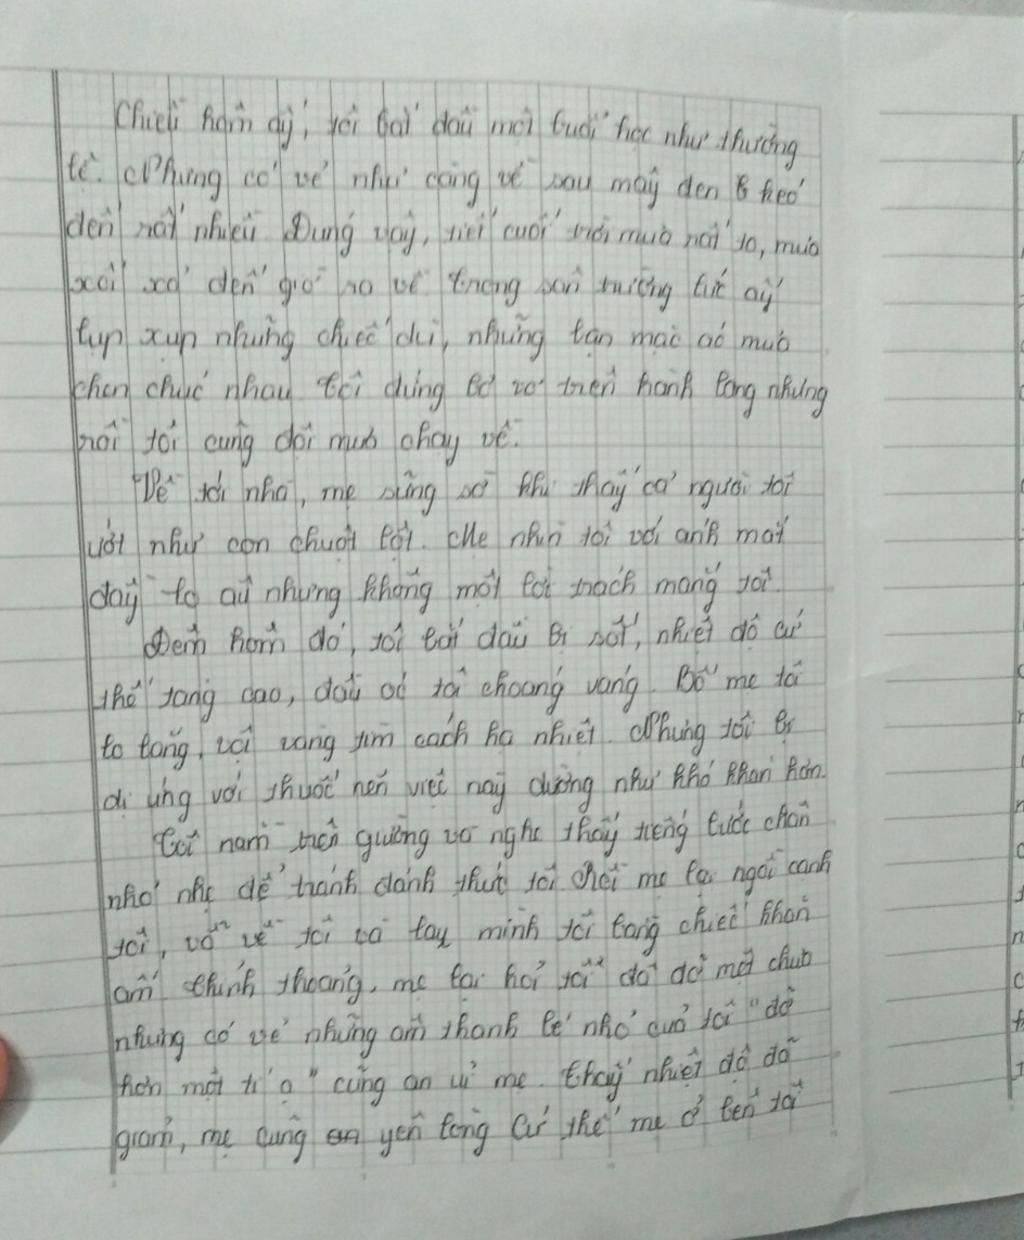 Chiều hôm ấy, tôi bắt đầu một buổi học như thường
lệ. Nhưng có vẻ như càng về sau mây đen kéo
đến rất nhiều. Đúng vậy, tiết cuối trời mưa rất to, mưa
xối xả đến giờ ra về. trong sân trường lúc ấy
lụp xụp những chiếc dù, những tán mạc áo mưa
chen chúc nhau. tôi đứng bơ vơ trên hành lang nhưng
rồi tôi cũng đội mưa chạy về.
Về tới nhà, mẹ sững sờ khi thấy cả người tôi
ướt như con chuột lột. Mẹ nhìn tôi với ánh mắt
đầy lo âu nhưng không một lời trách mắng tôi.
Đêm hôm đó, tôi bắt đầu bị sốt, nhiệt độ cứ
thế tăng cao, đầu óc tôi choáng váng. Bố mẹ tôi
lo lắng, vội vàng tìm cách hạ nhiệt. Nhưng tôi bị
dị ứng với thuốc nên việc này dường như khó khăn hơn.
tôi nằm trên giường và nghe thấy tiếng bước chân
nhỏ nhẹ để tránh đánh thức tôi. Rồi mẹ lại ngồi cạnh
tôi, vỗ về tôi và lau mình tôi bằng chiếc khăn
ấm. thỉnh thoảng, mẹ lại hỏi tôi đã đỡ một chưa
nhưng có vẻ những âm thanh bé nhỏ của tôi "đỡ
hơn một tí ạ" cũng an ủi mẹ. thấy nhiệt độ đã
giảm, mẹ cũng yên lòng. Cứ thế mẹ ở bên tôi